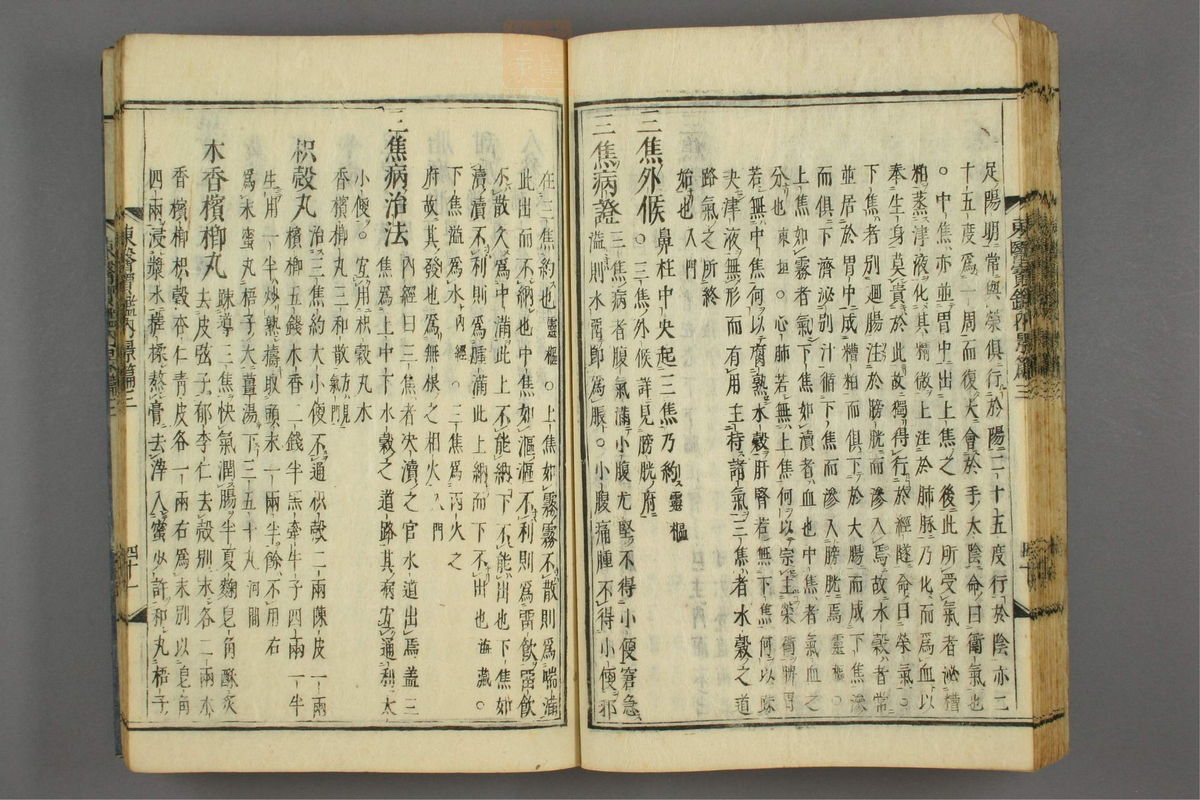 足陽明常與榮俱行於陽二十五度行於陰亦二
十五度爲一周而復大會於手太陰命曰衛氣也
○中焦亦並胃中出上焦之後此所受氣者泌糟
粕蒸津液化其精微上注於肺脉乃化而爲血以
奉生身莫貴於此故獨得行於經隧命曰榮氣○
下焦者別廻腸注於膀胱而滲入焉故水穀者常
並居於胃中成糟粕而俱下於大腸而成下焦滲
而俱下濟泌別汁循下焦而滲入膀胱焉靈樞○
上焦如霧者氣也下焦如瀆者血也中焦者氣血之
分也東垣○心肺若無上焦何以宗主榮衛脾胃
若無中焦何以腐熟水穀肝腎若無下焦何以踈
决津液無形而有用主持諸氣三焦者水穀之道
路氣之所終
始也入門
三焦外候鼻柱中央起三焦乃約靈樞
○三焦外候詳見膀胱府
三焦病證三焦病者腹氣滿小腹尤堅不得小便窘急
溢則水留卽爲脹○小腹痛腫不得小便邪
東醫寶鑑內景篇三
四十
在三焦約也靈樞○上焦如霧霧不散則爲喘滿
此出而不納也中焦如漚漚不利則爲留飮留飮
不散久爲中滿此上不能納下不能出也下焦如
瀆瀆不利則爲腫滿此上納而下不出也海藏○
下焦溢爲水內經○三焦爲丙火之
府故其發也爲無根之相火入門
三焦病治法內經曰三焦者决瀆之官水道出焉盖三
焦爲上中下水穀之道路其病宜通利大
小便○宜用枳殼丸木
香檳榔丸三和散方見氣門
枳殼丸治三焦約大小便不通枳殼二兩陳皮一兩
檳榔五錢木香二錢半黑牽牛子四兩一半
生用一半炒熟擣取頭末一兩半餘不用右
爲末蜜丸梧子大薑湯下三五十丸河間
木香檳榔丸踈導三焦快氣潤腸半夏麴皂角酥炙
去皮弦子郁李仁去殼別末各二兩木
香檳榔枳殼杏仁靑皮各一兩右爲末別以皂角
四兩浸漿水搓揉熬膏去滓入蜜少許和丸梧子
東醫寶鑑內景篇三
四十一